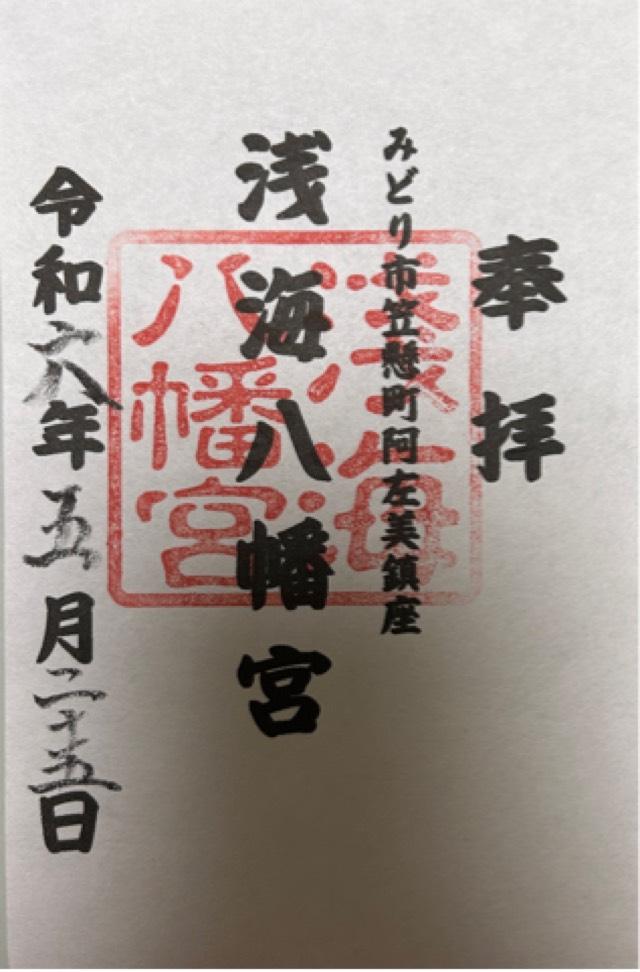 奉拝
みどり市笠懸町阿左美鎮座
浅海八幡宮
淺海
八幡宮
令和六年五月二十五日